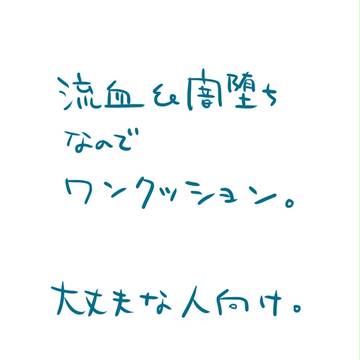 流血&闇堕ち
なので
ワンクッション。
大丈夫な人向け。